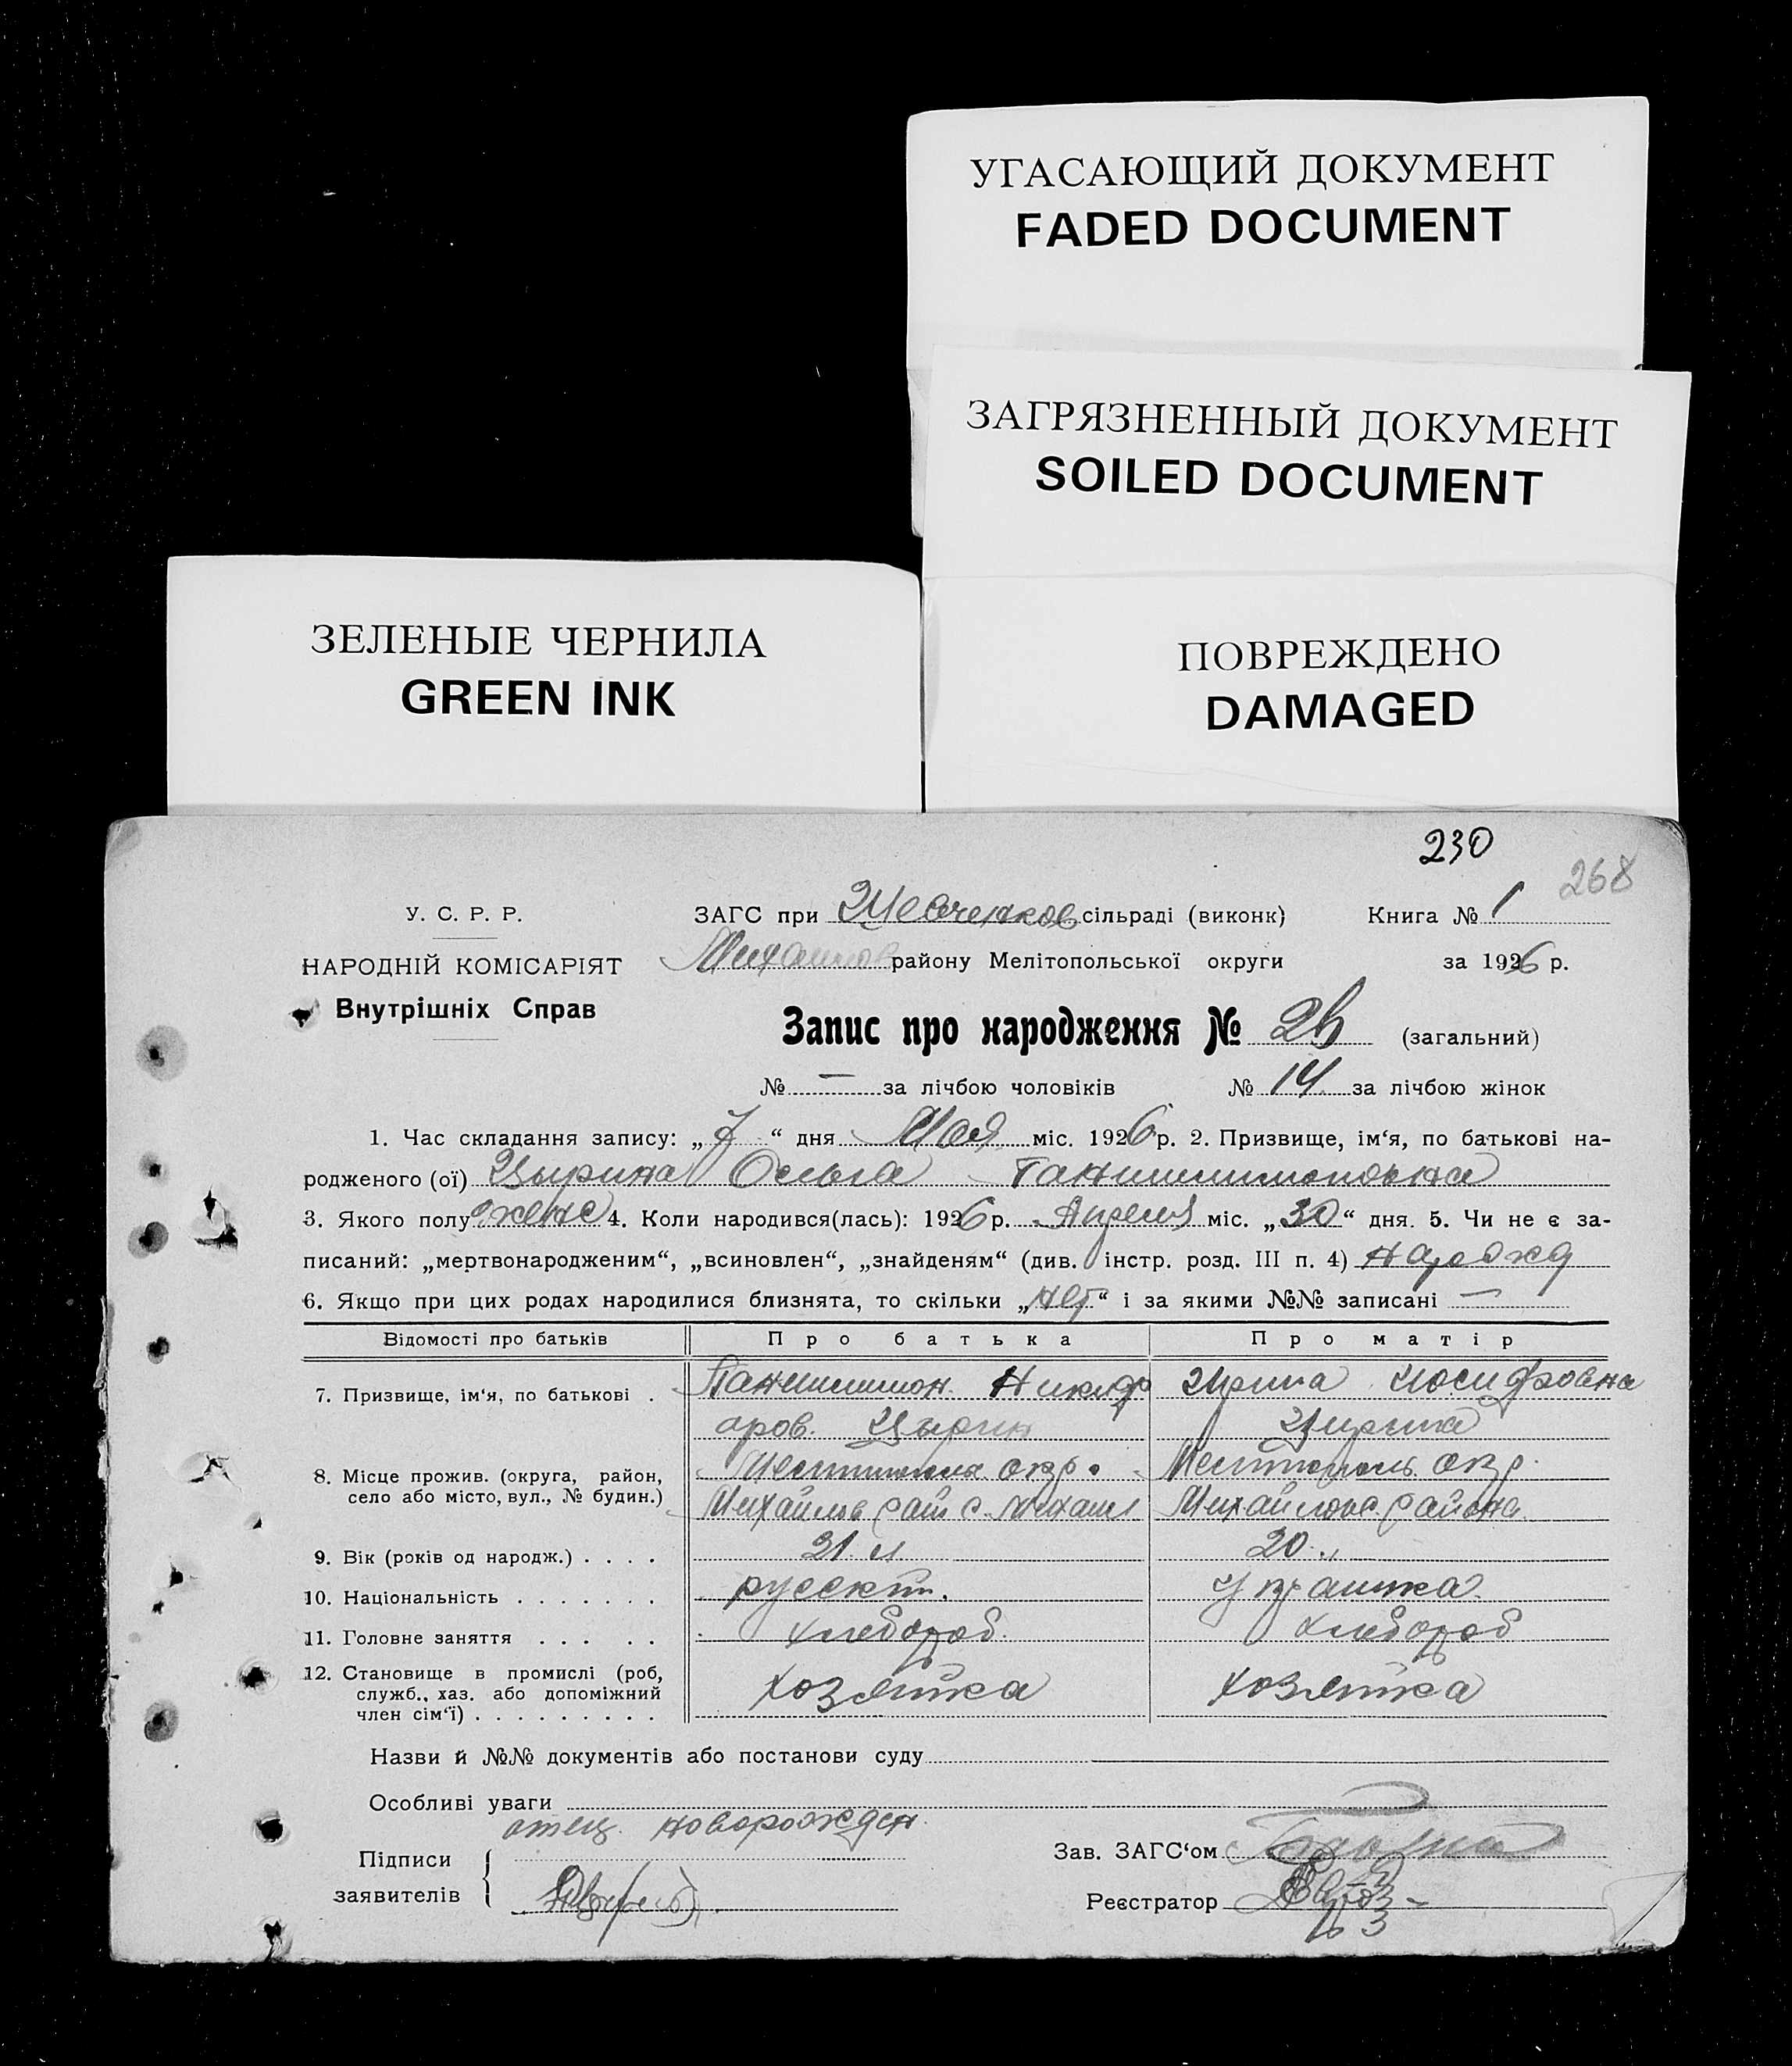 УГАСАЮЩИЙ ДОКУМЕНТ
FADED DOCUMENT
ЗАГРЯЗНЕННЫЙ ДОКУМЕНТ
SOILED DOCUMENT
ЗЕЛЕНЫЕ ЧЕРНИЛА
GREEN INK
ПОВРЕЖДЕНО
DAMAGED
230
268
У. С. Р. Р.
НАРОДНІЙ КОМІСАРІЯТ
Внутрішніх Справ
ЗАГС при Шевченков сільраді (виконк) Книга № 1
Михайлов району Мелітопольської округи за 1926 р.
Запис про народження № (загальний)
№ — за лічбою чоловіків № 14 за лічбою жінок
1. Час складання запису: „7“ дня Мая міс. 1926 р. 2. Призвище, ім‘я, по батькові на-
родженого (ої) Цырина Ольга
3. Якого полу женс 4. Коли народився(лась): 1926 р. Апреля міс. „30“ дня. 5. Чи не є за-
писаний: „мертвонародженим“, „всиновлен“, „знайденям“ (див. інстр. розд. III п. 4)
6. Якщо при цих родах народилися близнята, то скільки „нет“ і за якими №№ записані —
Відомості про батьків Про батька Про матір
7. Призвище, ім‘я, по батькові . Никиф Ирина Иосифовна
оров. Цырин Цирина
8. Місце прожив. (округа, район, окр. Мелитополь. окр.
село або місто, вул., № будин.) Михайлов рай с. Михайл Михайловс. района
9. Вік (років од народж.) . . . . 21 л 20 „
10. Національність . . . . . . . русский. Украинка
11. Головне заняття . . . . . хлебороб. хлебороб
12. Становище в промислі (роб, хозяйка хозяйка
служб., хаз. або допоміжний
член сім‘ї) . . . . . . . . .
Назви й №№ документів або постанови суду
Особливі уваги
отец новорожден.
Підписи
заявителів
Зав. ЗАГС‘ом
Реєстратор